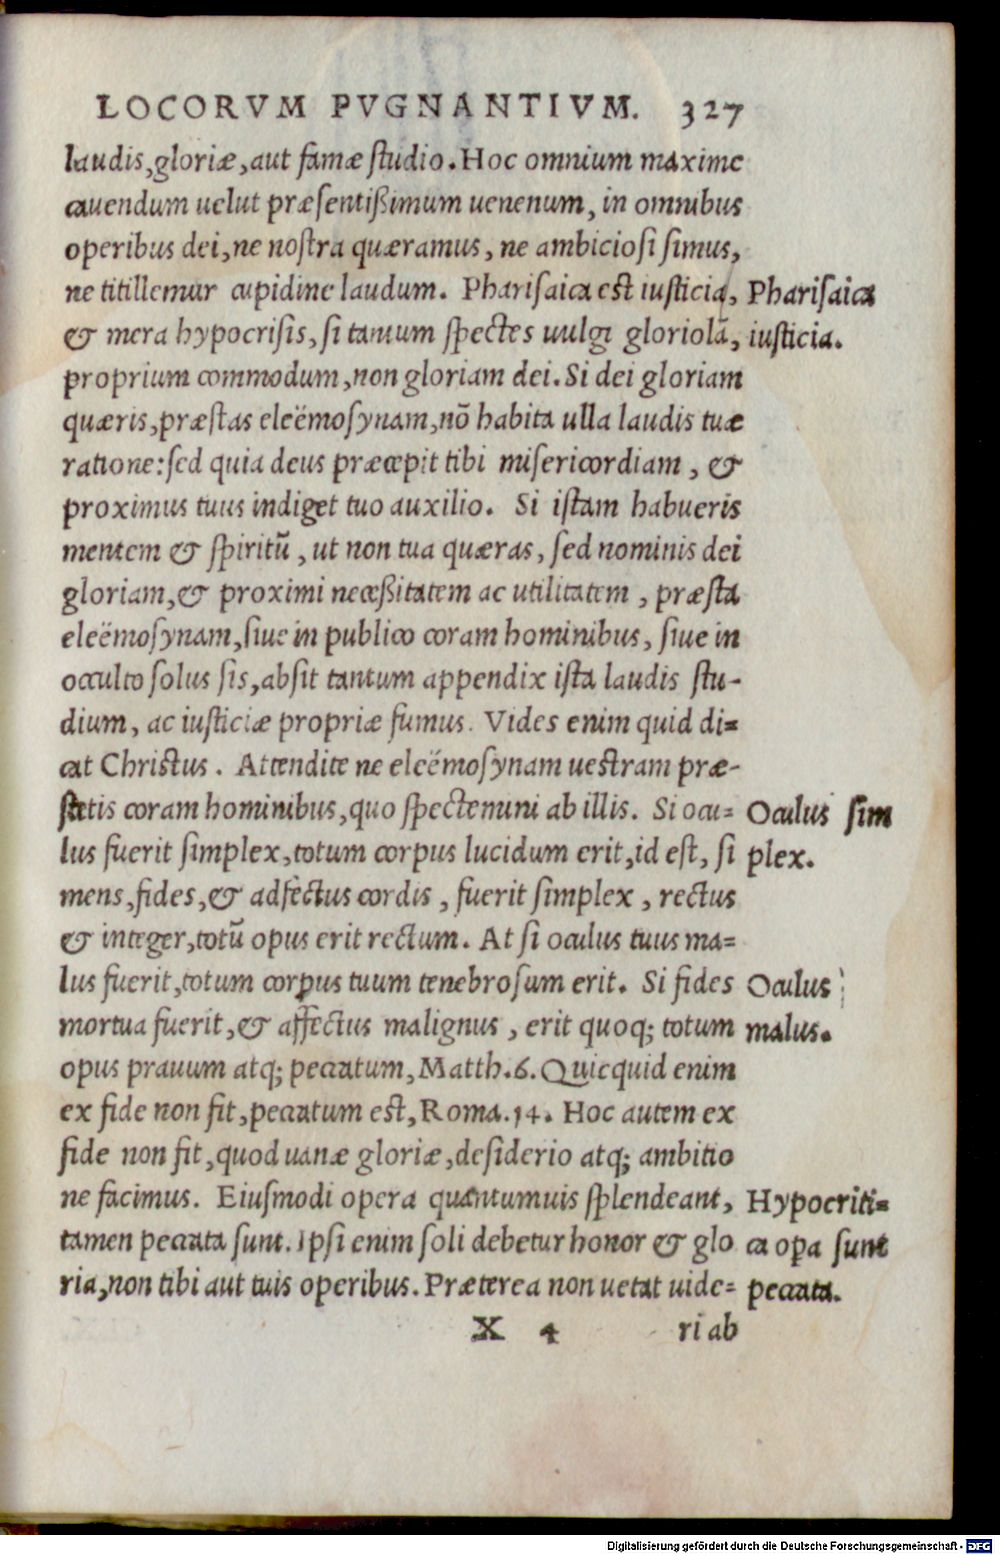 LOCORVM PVGNANTIVM. 327
laudis, gloriæ, aut famæ studio. Hoc omnium maxime
cauendum uelut præsentißimum uenenum, in omnibus
operibus dei, ne nostra quæramus, ne ambiciosi simus,
ne titillemur cupidine laudum. Pharisaica est iusticia,
Pharisaica
& mera hypocrisis, si tantum spectes uulgi gloriolā,
iusticia.
proprium commodum, non gloriam dei. Si dei gloriam
quæris, præstas eleëmosynam, nō habita ulla laudis tuæ
ratione: sed quia deus præcepit tibi misericordiam, &
proximus tuus indiget tuo auxilio. Si istam habueris
mentem & spiritū, ut non tua quæras, sed nominis dei
gloriam, & proximi neceßitatem ac utilitatem, præsta
eleëmosynam, siue in publico coram hominibus, siue in
occulto solus sis, absit tantum appendix ista laudis stu-
dium, ac iusticiæ propriæ fumus. Vides enim quid di=
cat Christus. Attendite ne eleëmosynam uestram præ-
stetis coram hominibus, quo spectemini ab illis. Si ocu=
Oculus sim
lus fuerit simplex, totum corpus lucidum erit, id est, si
plex.
mens, fides, & adfectus cordis, fuerit simplex, rectus
& integer, totū opus erit rectum. At si oculus tuus ma=
lus fuerit, totum corpus tuum tenebrosum erit. Si fides
Oculus
mortua fuerit, & affectus malignus, erit quoq; totum
malus.
opus prauum atq; peccatum, Matth. 6. Quicquid enim
ex fide non fit, peccatum est, Roma. 14. Hoc autem ex
fide non fit, quod uanæ gloriæ, desiderio atq; ambitio
ne facimus. Eiusmodi opera quantumuis splendeant,
Hypocriti=
tamen peccata sunt. Ipsi enim soli debetur honor & glo
ca opa sunt
ria, non tibi aut tuis operibus. Præterea non uetat uide=
peccata.
X 4 ri ab
Digitalisierung gefördert durch die Deutsche Forschungsgemeinschaft - DFG